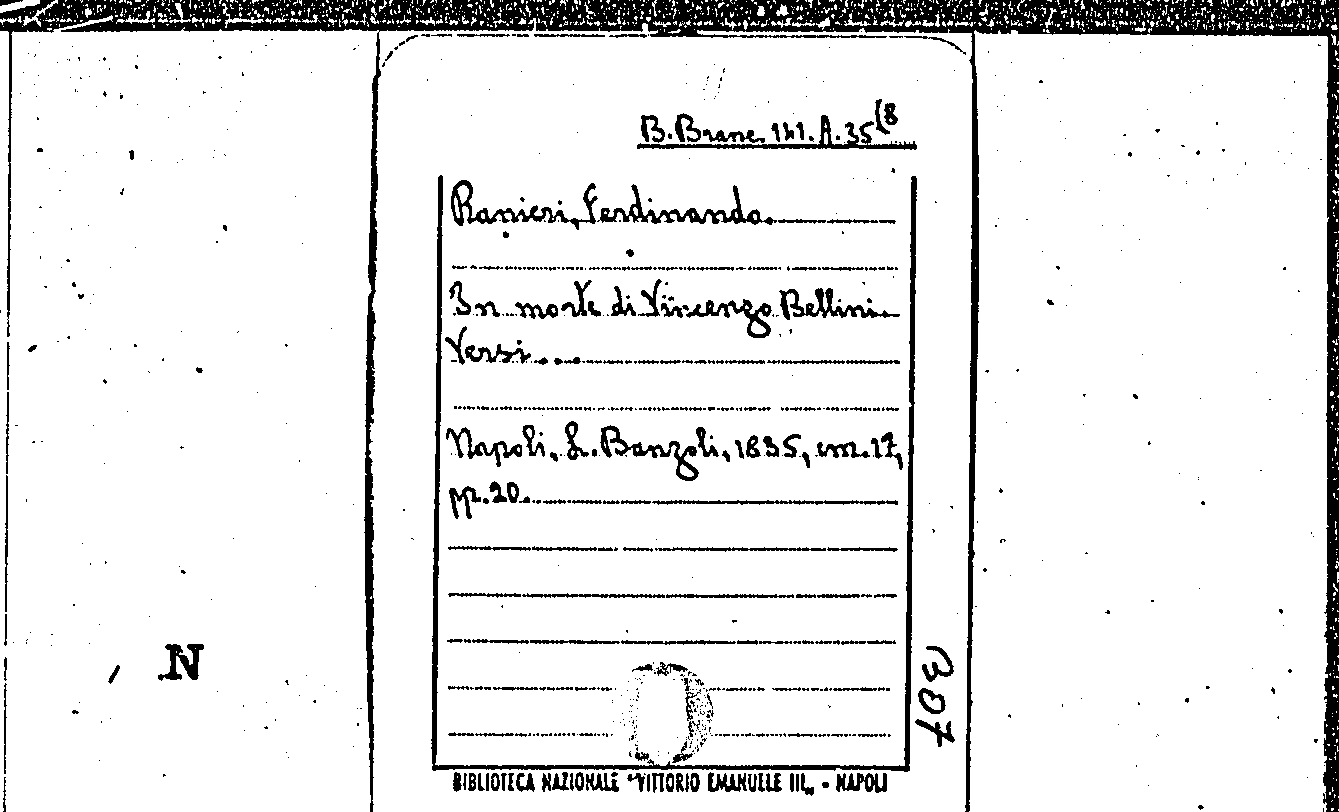 B. Branc. 141. A. 35(8
Ranieri, Ferdinando.
In morte di Vincenzo Bellini.
Versi...
Napoli, L. Banzoli, 1835, cm. 17,
pp. 20.
307
N
BIBLIOTECA NAZIONALE "VITTORIO EMANUELE III„ - NAPOLI